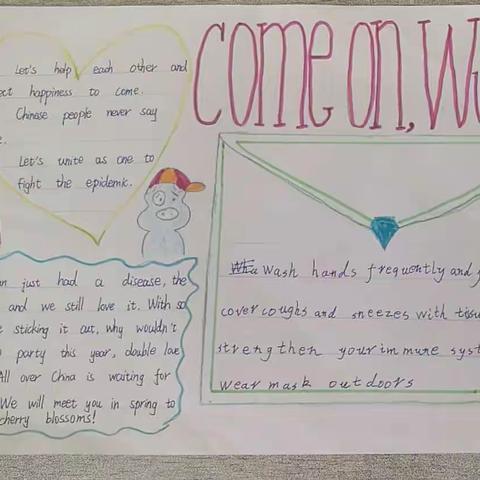 COME ON, W
Let's help each other and
ect happiness to come.
Chinese people never say
e.
Let's unite as one to
fight the epidemic.
n just had a disease, the
and we still love it. With so
e sticking it out, why wouldn't
party this year, double love
All over China is waiting for
We will meet you in spring to
cherry blossoms!
wash hands frequently and
cover coughs and sneezes with tissu
strengthen your immune syst
wear mask outdoors